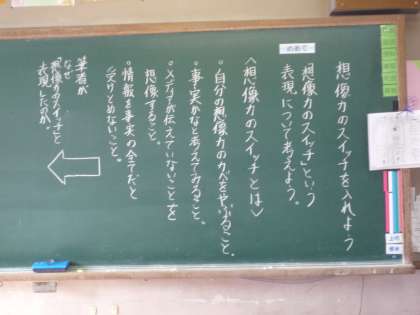 想像力のスイッチを入れよう
めあて
「想像力のスイッチ」という
表現について考えよう。
〈想像力のスイッチとは〉
・自分の想像力のカベをやぶること。
・事実かなと考えてみること。
・メディアが伝えていないことを
想像すること。
・情報を事実の全てだと
受けとめないこと。
筆者が
なぜ
「想像力のスイッチ」と
表現したのか。